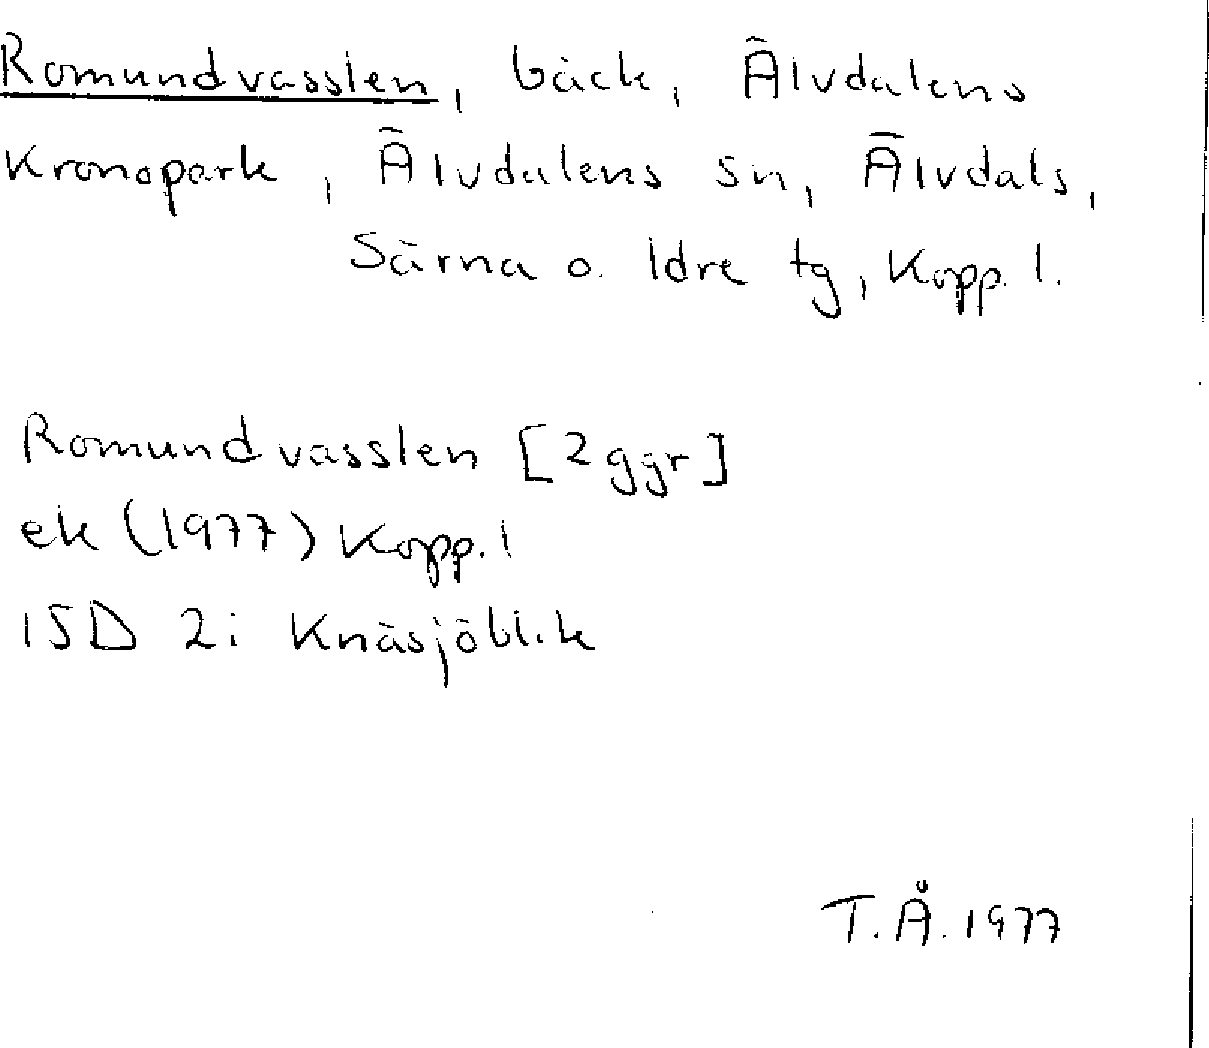 Romundvasslen, bäck, Älvdalens
Kronopark, Älvdalens sn, Älvdals,
Särna o. Idre tg, Kopp. l.
Romundvasslen [2 ggr]
ek (1977) Kopp. l
15D 2i Knäsjöblik
T.Å. 1977